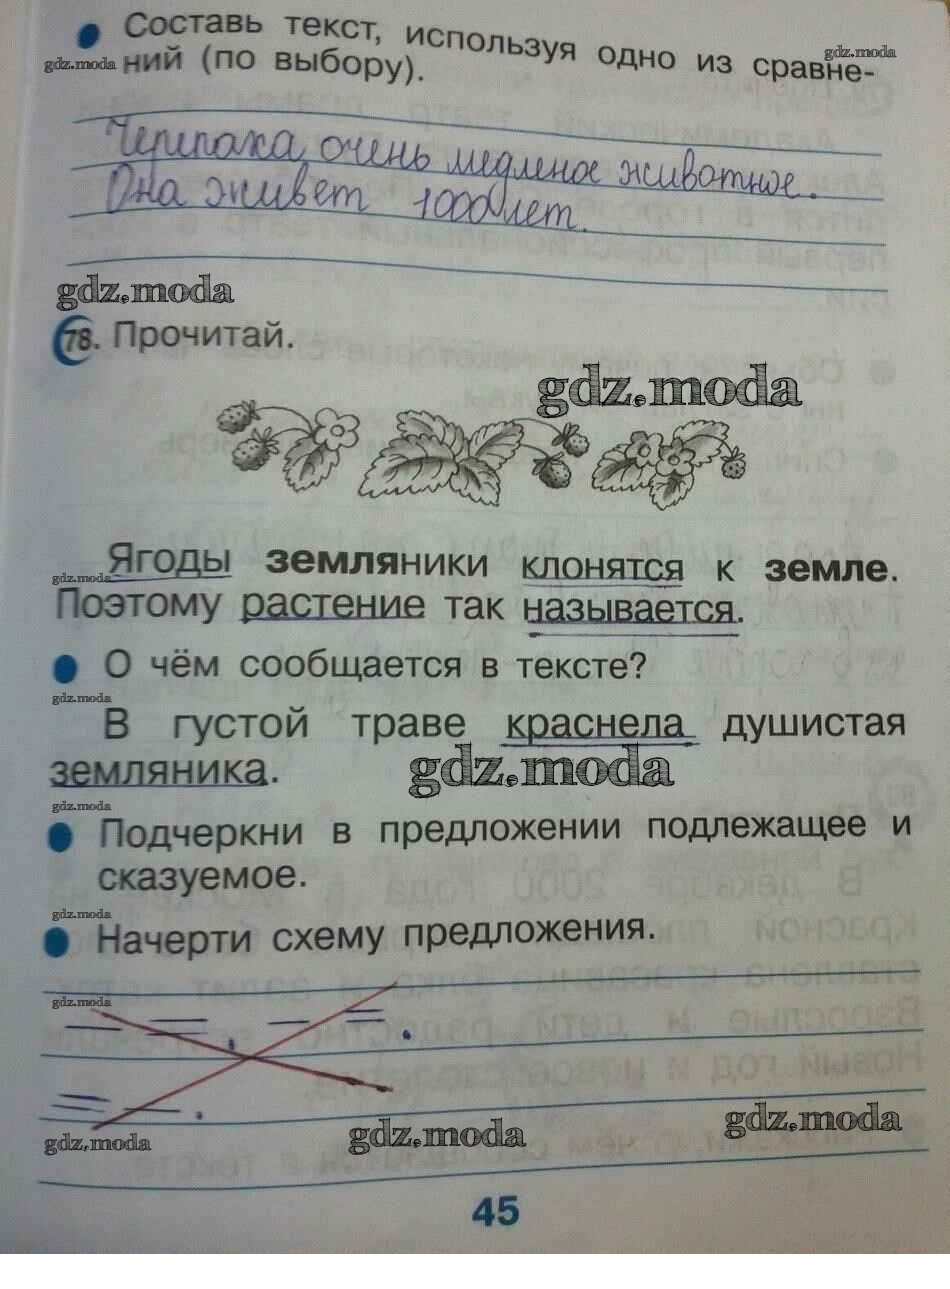 Составь текст, используя одно из сравне-
gdz.moda ний (по выбору). gdz.moda
Черепаха очень медленое животное.
Она живет 1000 лет.
gdz.moda
78. Прочитай.
gdz.moda
Ягоды земляники клонятся к земле.
gdz.moda
Поэтому растение так называется.
О чём сообщается в тексте?
gdz.moda
В густой траве краснела душистая
земляника. gdz.moda
gdz.moda
Подчеркни в предложении подлежащее и
сказуемое.
gdz.moda
Начерти схему предложения.
gdz.moda
gdz.moda gdz.moda gdz.moda
45